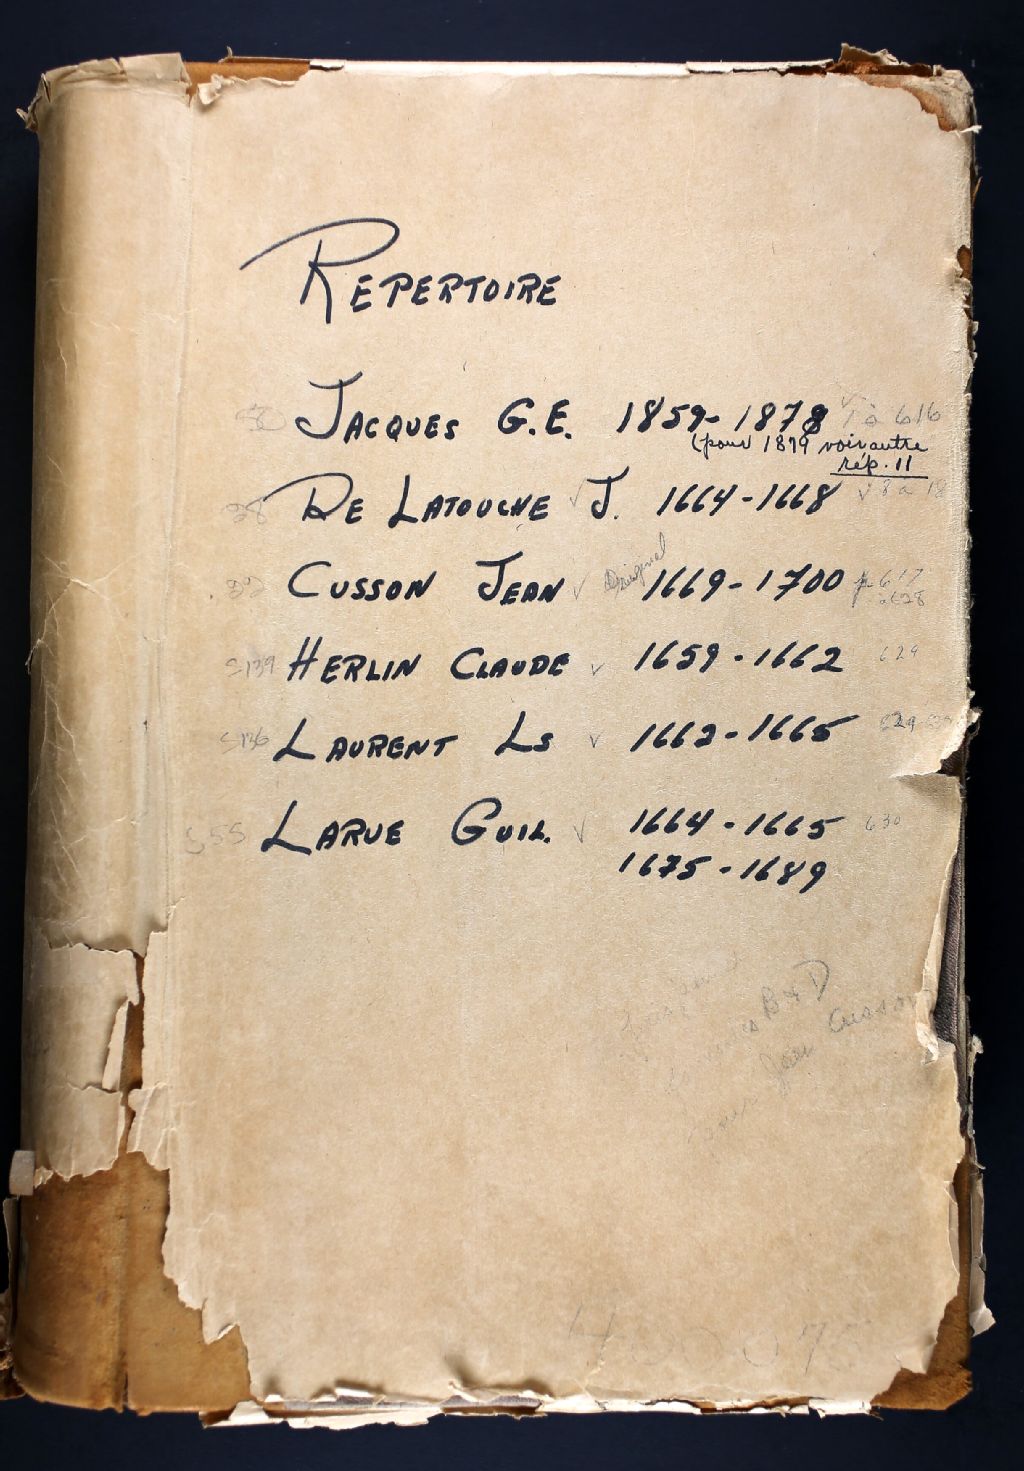 REPERTOIRE
JACQUES G.E. 1859-1878 1 à 616
(pour 1879 voir autre
rép. 11
38 DE LATOUCHE J. 1664-1668 8 a 18
CUSSON JEAN Original 1669-1700 p 617
à 628
S139 HERLIN CLAUDE 1659-1662 629
S136 LAURENT LS 1662-1665 629-630
S55 LARUE GUIL. 1664-1665 630
1675-1689
B & D
pour Jean Cusson
400075